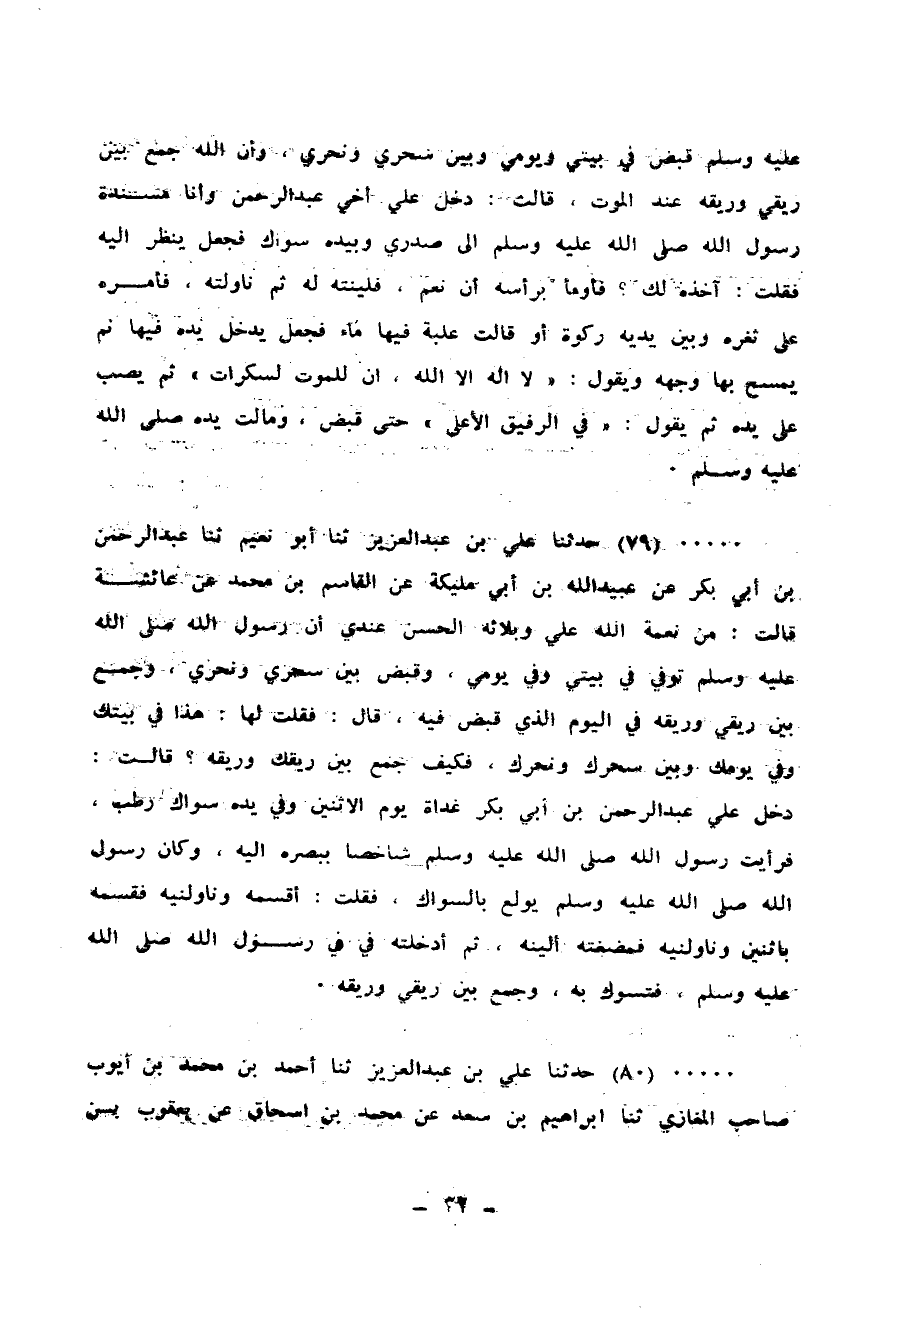 عليه وسلم قبض في بيتي ويومي وبين سحري ونحري ، وأن الله جمع بين
ريقي وريقه عند الموت ، قالت : دخل علي أخي عبدالرحمن وأنا مسندة
رسول الله صلى الله عليه وسلم الى صدري وبيده سواك فجعل ينظر اليه
فقلت : آخذه لك ؟ فأومأ برأسه أن نعم ، فلينته له ثم ناولته ، فأمره
على ثغره وبين يديه ركوة أو قالت علبة فيها ماء فجعل يدخل يده فيها ثم
يمسح بها وجهه ويقول : « لا اله الا الله ، ان للموت لسكرات » ثم يصب
على يده ثم يقول : « في الرفيق الأعلى » حتى قبض ، ومالت يده صلى الله
عليه وسلم ٠
٠٠٠٠٠ (٧٩) حدثنا علي بن عبدالعزيز ثنا أبو نعيم ثنا عبدالرحمن
بن أبي بكر عن عبيدالله بن أبي مليكة عن القاسم بن محمد عن عائشة
قالت : من نعمة الله علي وبلائه الحسن عندي أن رسول الله صلى الله
عليه وسلم توفي في بيتي وفي يومي ، وقبض بين سحري ونحري ، وجمع
بين ريقي وريقه في اليوم الذي قبض فيه ، قال : فقلت لها : هذا في بيتك
وفي يومك وبين سحرك ونحرك ، فكيف جمع بين ريقك وريقه ؟ قالت :
دخل علي عبدالرحمن بن أبي بكر غداة يوم الاثنين وفي يده سواك رطب ،
فرأيت رسول الله صلى الله عليه وسلم شاخصا ببصره اليه ، وكان رسول
الله صلى الله عليه وسلم يولع بالسواك ، فقلت : أقسمه وناولنيه فقسمه
باثنين وناولنيه فمضغته ألينه ، ثم أدخلته في في رسول الله صلى الله
عليه وسلم ، فتسوك به ، وجمع بين ريقي وريقه ٠
٠٠٠٠٠ (٨٠) حدثنا علي بن عبدالعزيز ثنا أحمد بن محمد بن أيوب
صاحب المغازي ثنا ابراهيم بن سعد عن محمد بن اسحاق عن يعقوب بسن